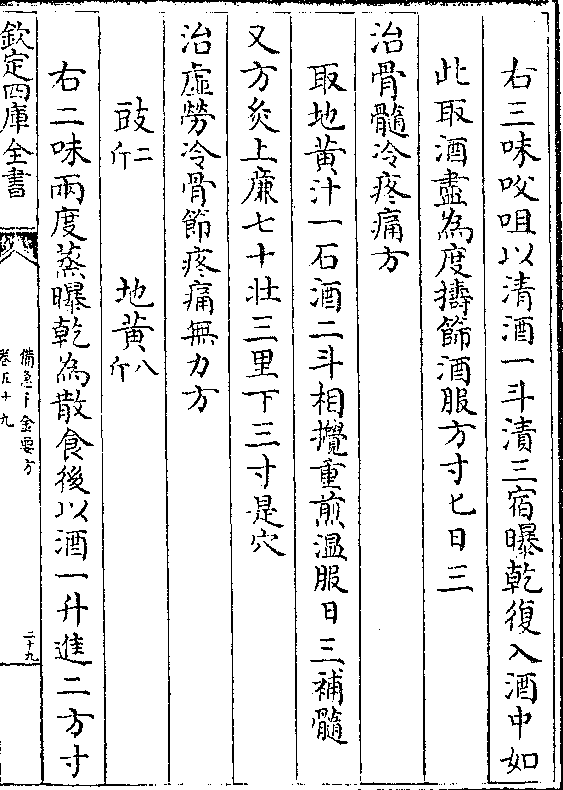 右三味㕮咀以清酒一斗漬三宿曝乾復入酒中如
此取酒盡為度擣篩酒服方寸匕日三
治骨髓冷疼痛方
取地黄汁一石酒二斗相攪重煎温服日三補髓
又方灸上廉七十壯三里下三寸是穴
治虛勞冷骨節疼痛無力方
豉二斤 地黄八斤
右二味兩度蒸曝乾為散食後以酒一升進二方寸
欽定四庫全書
備急千金要方
卷五十九
二十九